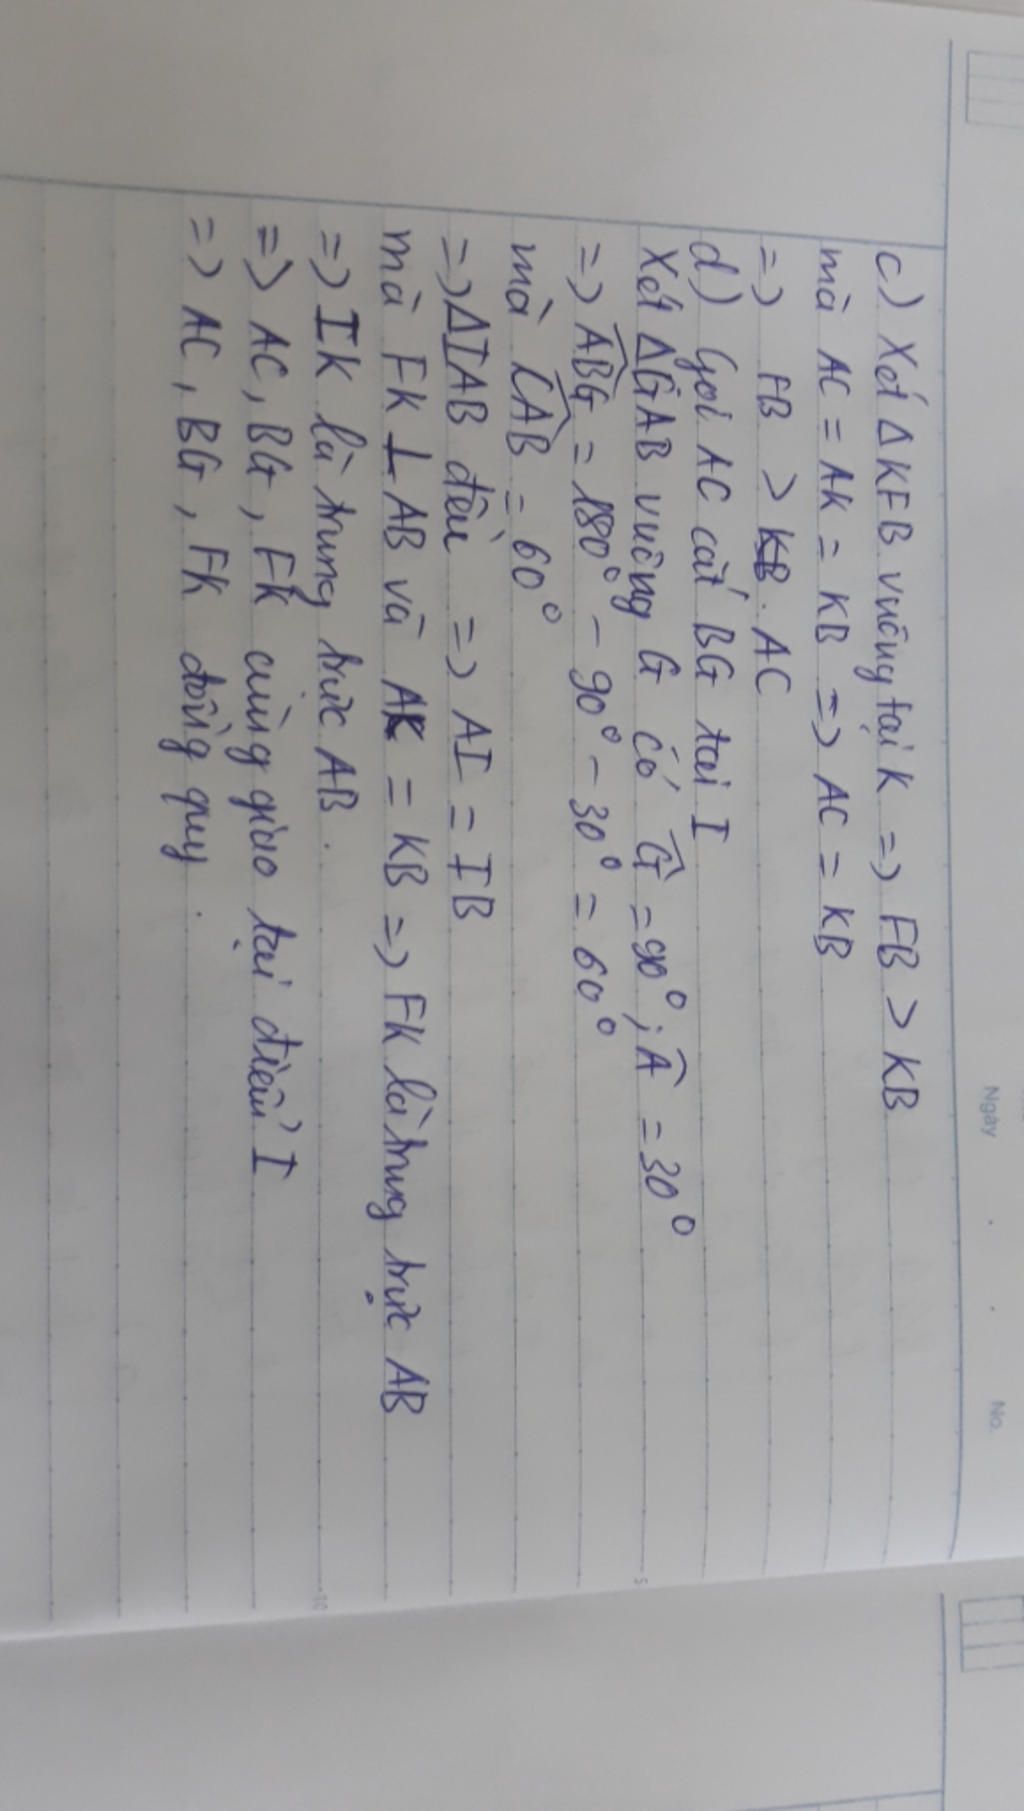 Ngày . . No.
c) Xét ΔKFB vuông tại K => FB > KB
mà AC = AK = KB => AC = KB
=> FB > AC
d) Gọi AC cắt BG tại I
Xét ΔGAB vuông G có Ĝ = 90°; Â = 30°
=> ABG = 180° - 90° - 30° = 60°
mà CAB = 60°
=> ΔIAB đều => AI = IB
mà FK ⊥ AB và AK = KB => FK là trung trực AB
=> IK là trung trực AB.
=> AC, BG, FK cùng giao tại điểm I
=> AC, BG, FK đồng quy.
5
10